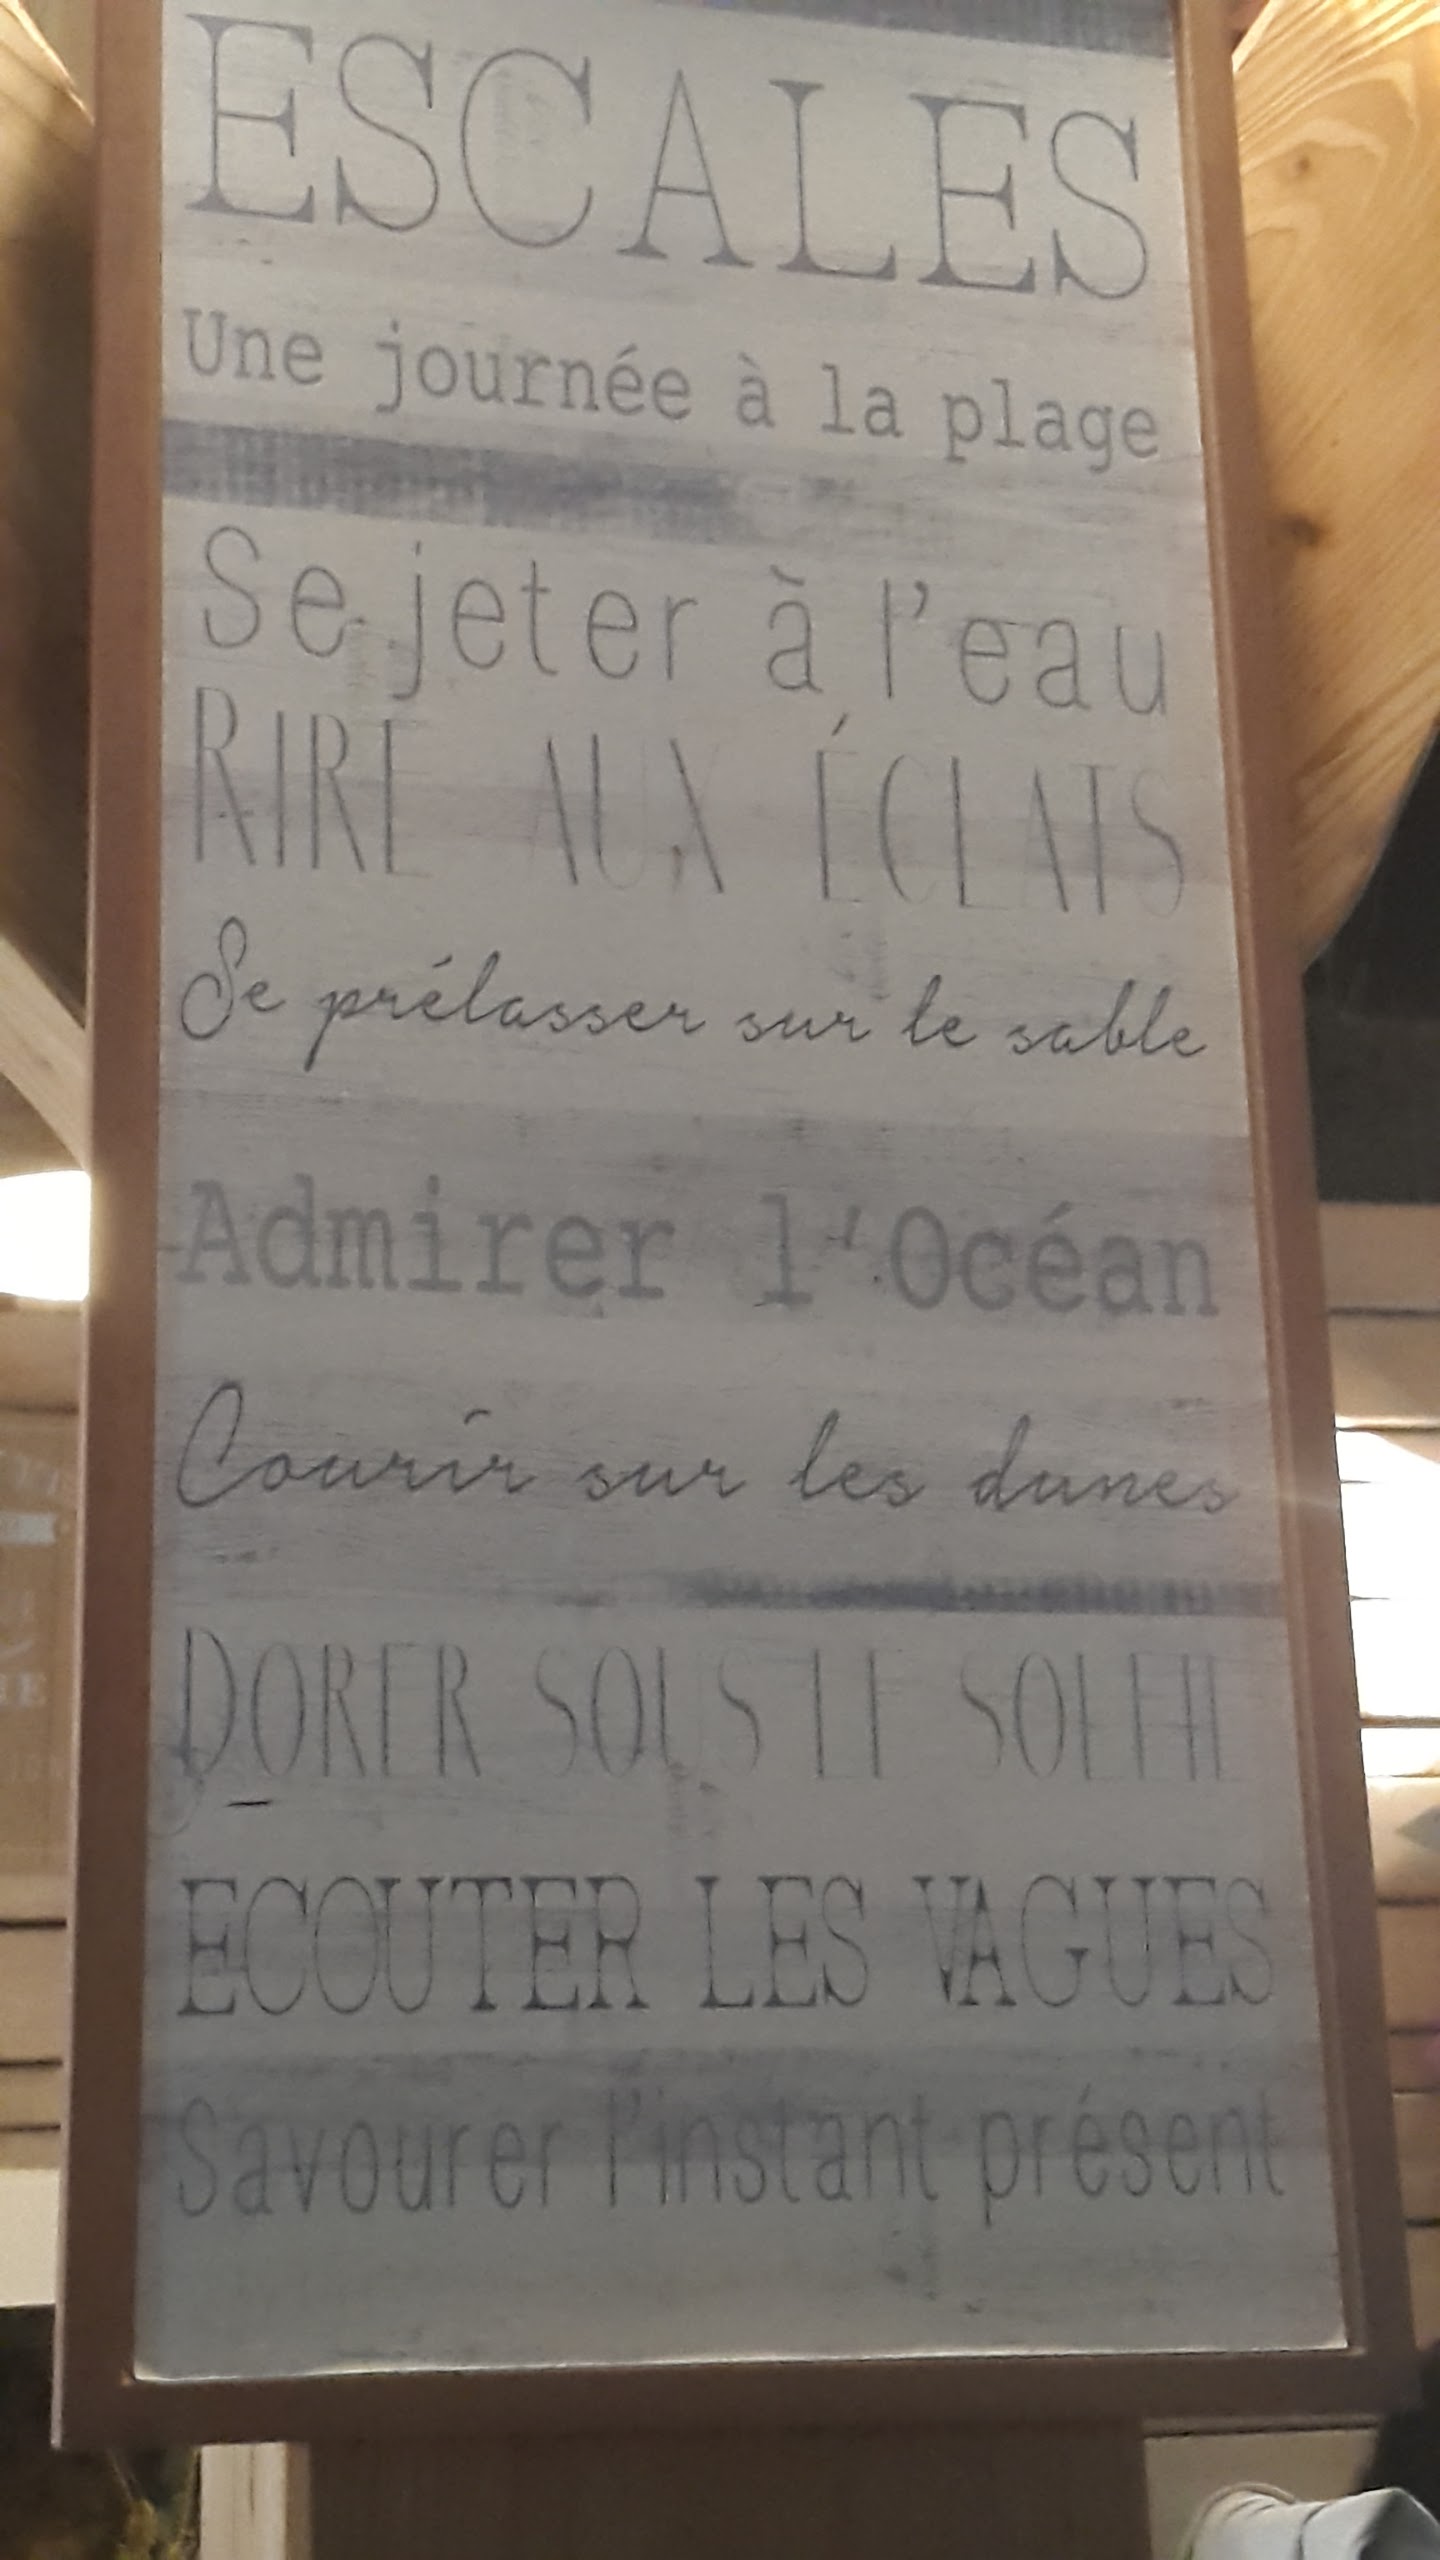 ESCALES
Une journée à la plage
Se jeter à l'eau
RIRE AUX ÉCLATS
Se prélasser sur le sable
Admirer l'Océan
Courir sur les dunes
DORER SOUS LE SOLEIL
ECOUTER LES VAGUES
Savourer l'instant présent